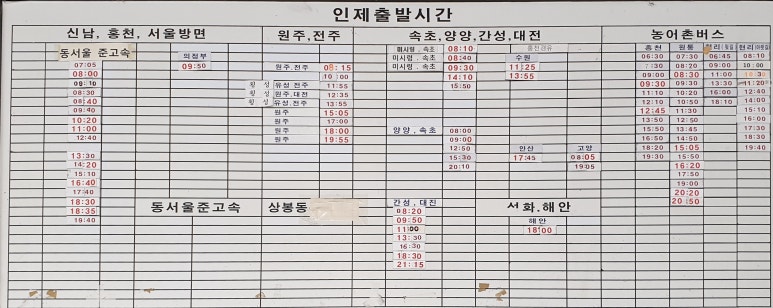 인제출발시간
신남, 홍천, 서울방면
원주,전주
속초,양양,간성,대전
농어촌버스
동서울 준고속
07:05
08:00
08:30
08:40
09:40
10:20
11:00
12:40
13:30
14:20
15:10
16:40
17:40
18:30
18:35
19:40
의정부
09:50
원주.전주 08:15
10:00
횡성 유성.전주 11:55
횡성 원주.대전 12:35
횡성 유성.전주 13:55
원주 15:05
원주 17:00
원주 18:00
원주 19:55
미시령.속초 08:10
미시령.속초 08:40
미시령.속초 09:30
14:10
15:50
홍천경유
수원
11:25
13:55
양양.속초 08:00
09:00
12:50
15:30
20:10
안산
17:45
고양
08:05
19:05
홍천
06:30
07:30
09:00
09:30
11:10
12:10
12:45
13:50
15:50
17:30
18:20
19:30
원통
07:30
08:20
08:30
09:30
10:20
10:50
11:50
12:50
13:45
14:50
15:05
15:50
16:20
17:50
19:00
20:20
20:50
06:45
09:00
11:00
13:30
16:00
18:10
08:10
10:00
11:20
12:40
14:00
15:10
16:00
17:00
18:30
19:40
동서울준고속
상봉동
간성, 대진
08:20
09:50
11:00
13:30
16:30
18:30
21:15
서화.해안
해안
18:00